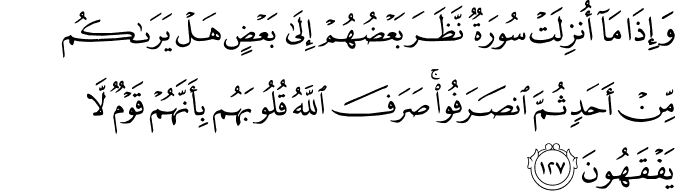 وَإِذَا مَآ أُنزِلَتْ سُورَةٌ نَّظَرَ بَعْضُهُمْ إِلَىٰ بَعْضٍ هَلْ يَرَىٰكُم
مِّنْ أَحَدٍ ثُمَّ ٱنصَرَفُوا۟ ۚ صَرَفَ ٱللَّهُ قُلُوبَهُم بِأَنَّهُمْ قَوْمٌ لَّا
يَفْقَهُونَ ١٢٧